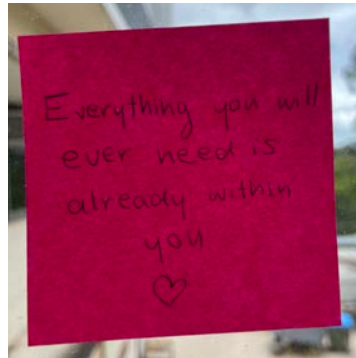 Everything you will
ever need is
already within
you
♡